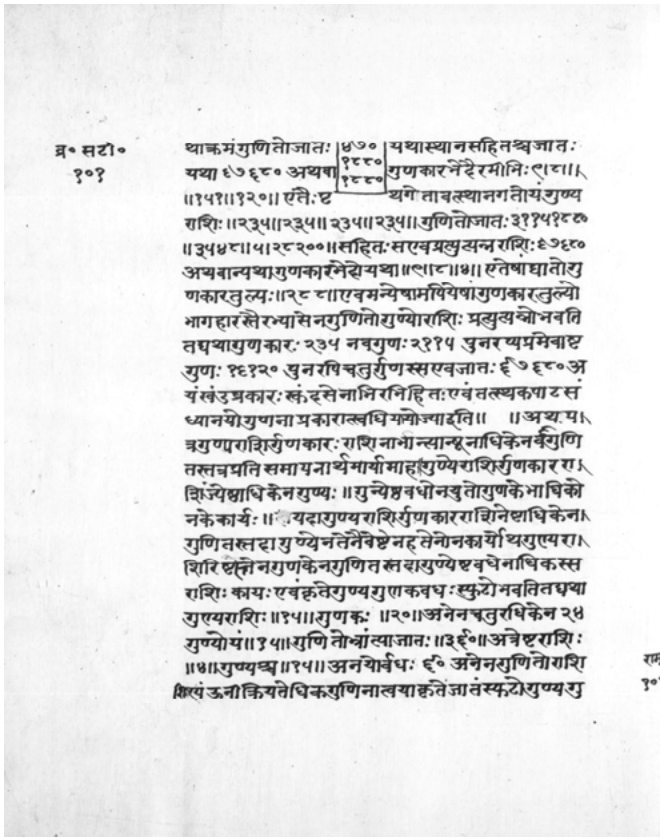 ब्र॰ सटी॰
१०१
थाक्रमंगुणितोजातः ४७० यथास्थानसहितश्चजातः
१८८०
यथा ६७६८० अथवा गुणकारभेदैरमीभिः ९।८।।
१८८०
॥१५१॥१२०॥ एतैः
राशिः॥२३५॥२३५॥२३५॥२३५॥गुणितोजातः
सहितः सएवप्रत्युत्पन्नराशिः ६७६८०
अथवान्यथागुणकारभेदोयथा॥९।८।४॥एतेषांघातोगु
णकारतुल्यः॥२८८॥एवमन्येषामपियेषांगुणकारतुल्यो
भागहारस्तैरभ्यासेनगुणितोगुण्योराशिः प्रत्युत्पन्नोभवति
तद्यथागुणकारः २३५ नवगुणः २११५ पुनरप्ययमेवाष्ट
गुणः १६९२० पुनरपिचतुर्गुणस्सएवजातः ६७६८० अ
यंखंडप्रकारः स्कंदसेनाभिरभिहितः एवंतत्स्थकपाटसं
ध्यानयोगुणनाप्रकारात्स्वधियायोज्याइति॥ ॥अथय
त्रगुण्यराशिर्गुणकारः राशिनाभ्रान्त्यान्यूनाधिकेनवैगुणि
तस्तत्रप्रतिसमायनार्थमार्यामाह॥गुण्येराशिर्गुणकाररा
शिज्येष्टाधिकेनगुण्यः॥गुन्येष्टवधोनयुतोगुणकेभाधिको
नकेकार्यः॥ यदागुण्यराशिर्गुणकारराशिनेष्टाधिकेन
गुणितस्तदागुण्येनतेनैवेष्टेनहतेनोनकार्योथगुण्यरा
शिरिष्टोनेनगुणकेनगुणितस्तदागुण्येष्टवधेनाधिकस्स
राशिः कायः एवंकृतेगुण्यगुणकवधः स्फुटोभवतितद्यथा
गुण्यराशिः॥१५॥गुणकः॥२०॥अनेनचतुरधिकेन २४
गुण्योयं॥१५॥गुणितोभ्रांत्याजातः॥३६०॥अत्रेष्टराशिः
॥४॥गुण्यश्च॥१५॥अनयोर्वधः ६० अनेनगुणितोराशि
ऊनीक्रियतेधिकगुणिनात्वयाकृतेजातंस्फुटोगुण्यगु